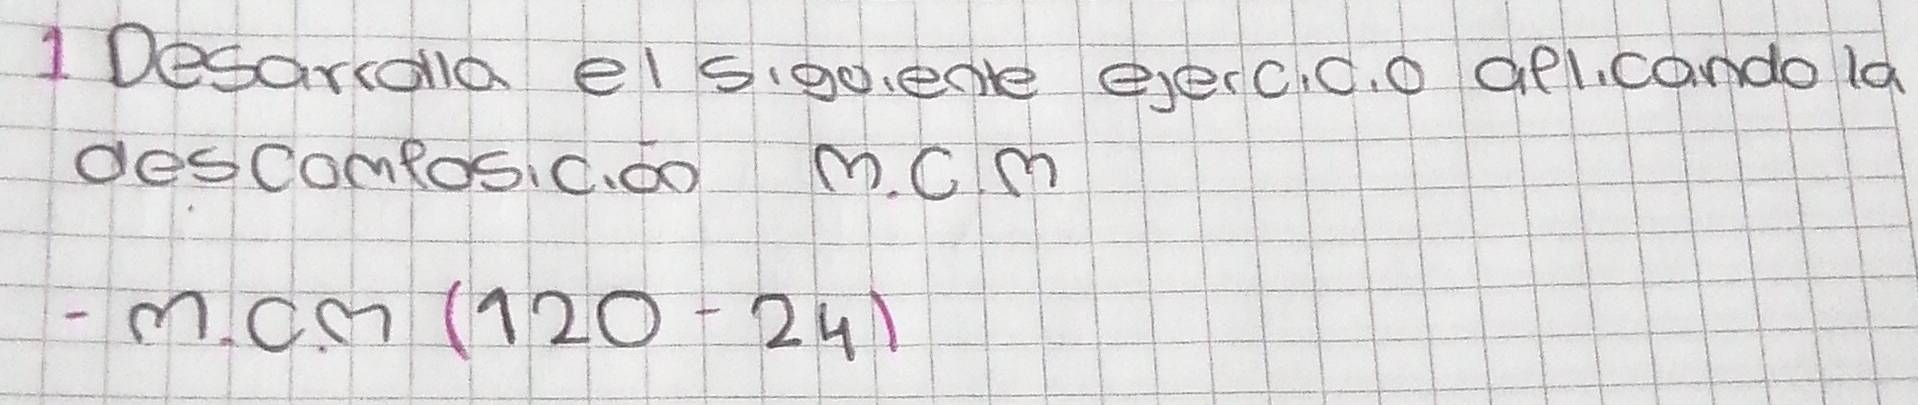 1 Desarrolla el siguiente ejercicio aplicando la
descomposición m.c.m
- m.c.m (120 - 24)